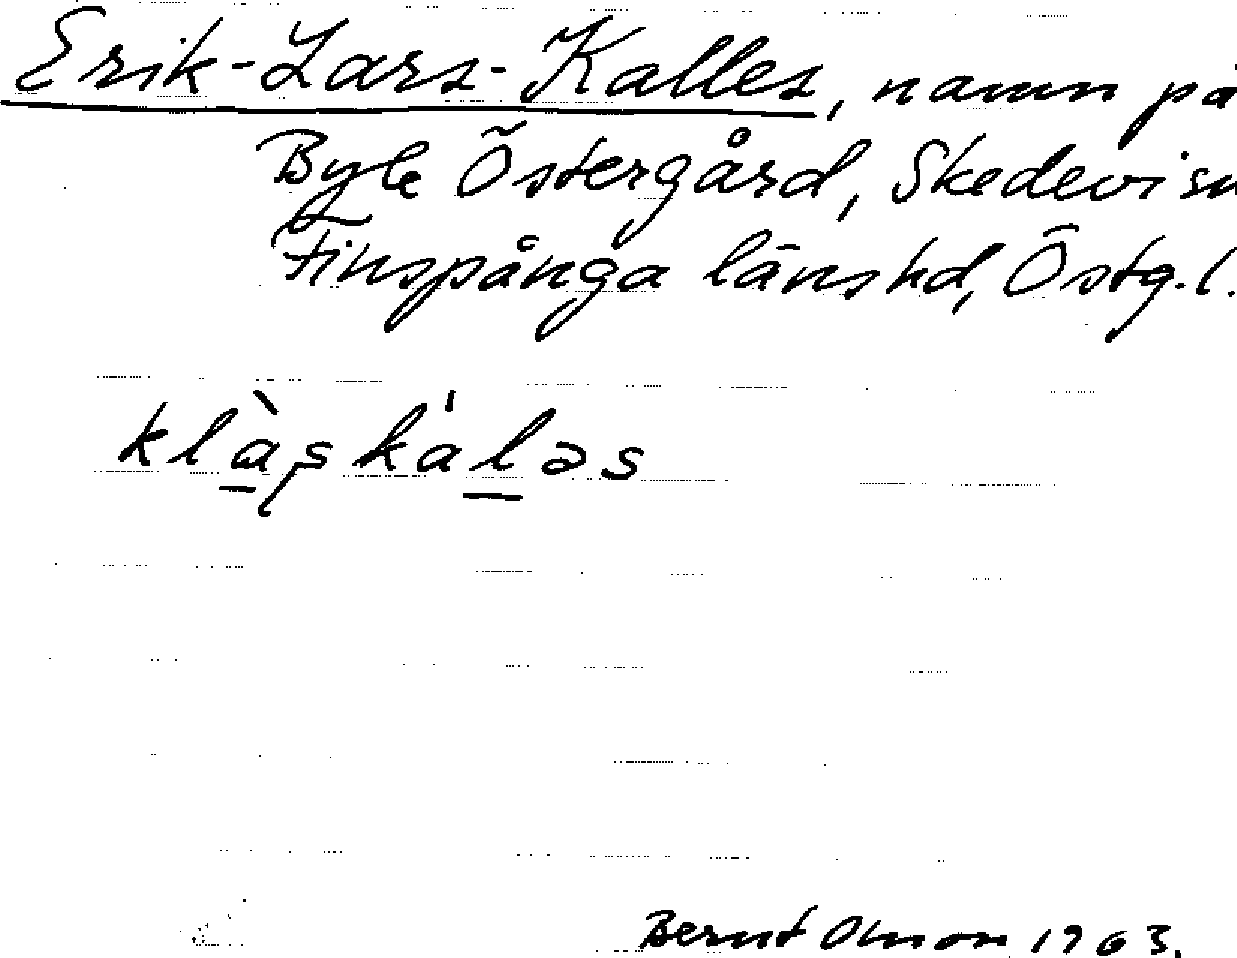 Erik-Lars-Kalles, namn på
Byle Östergård, Skedevi sn
Finspånga länshd, Östg. l.
klàʂkáləs
Bernt Olsson 1963.